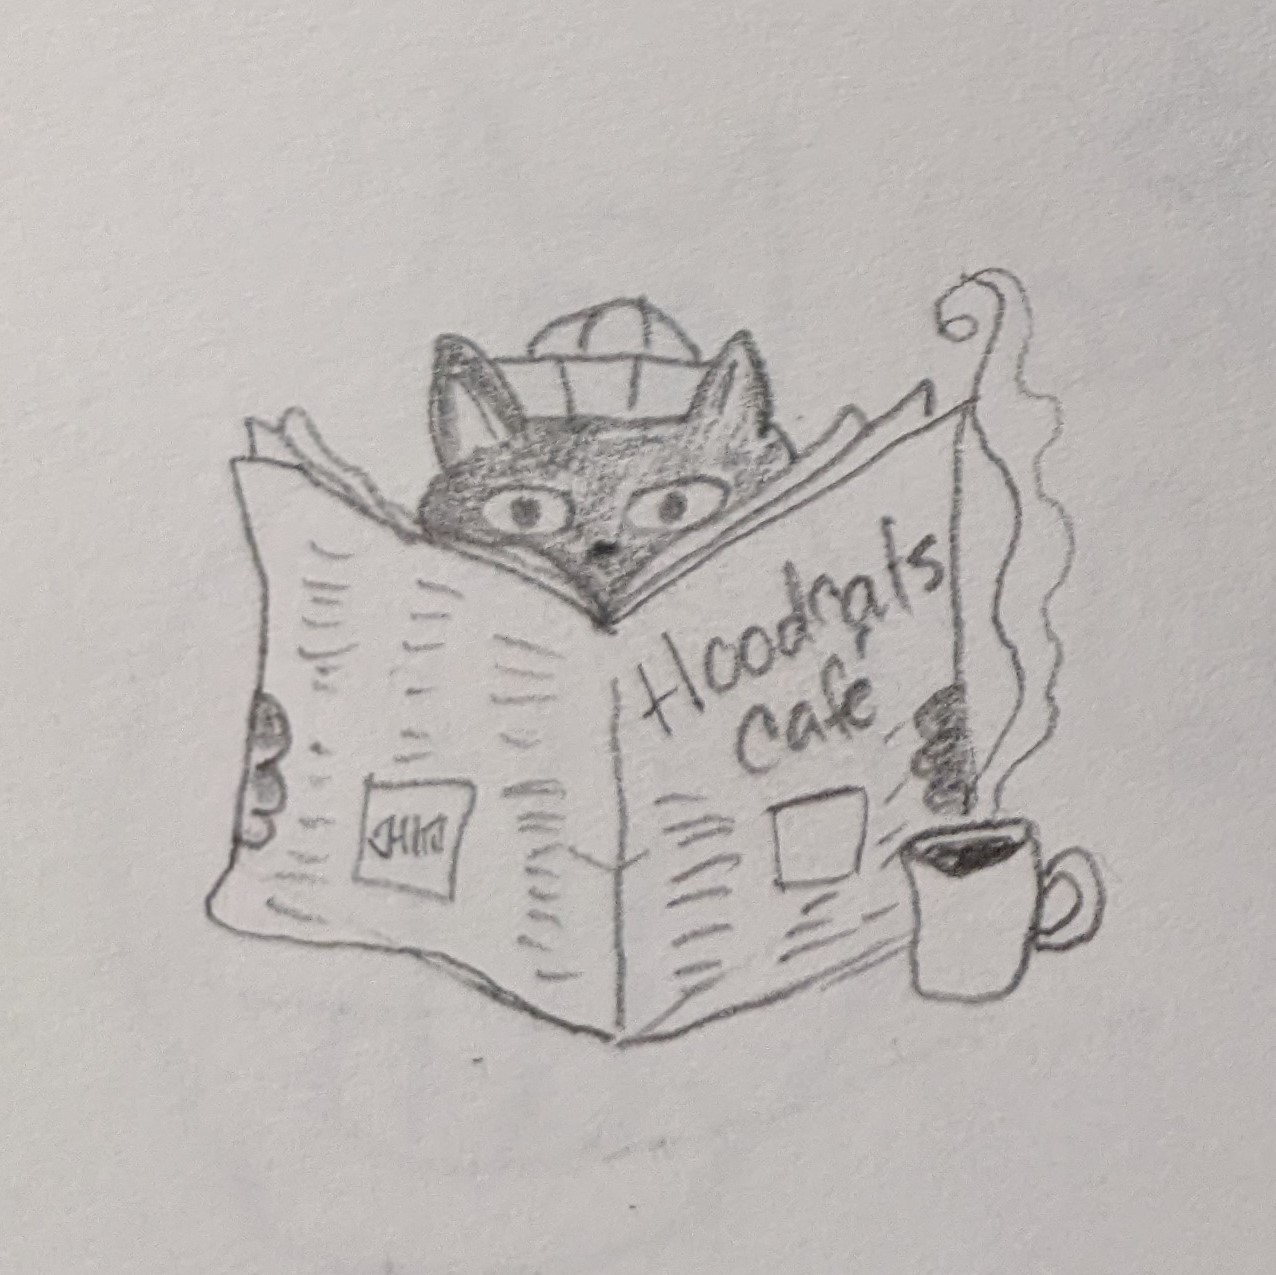 Hoodrats
Cafe